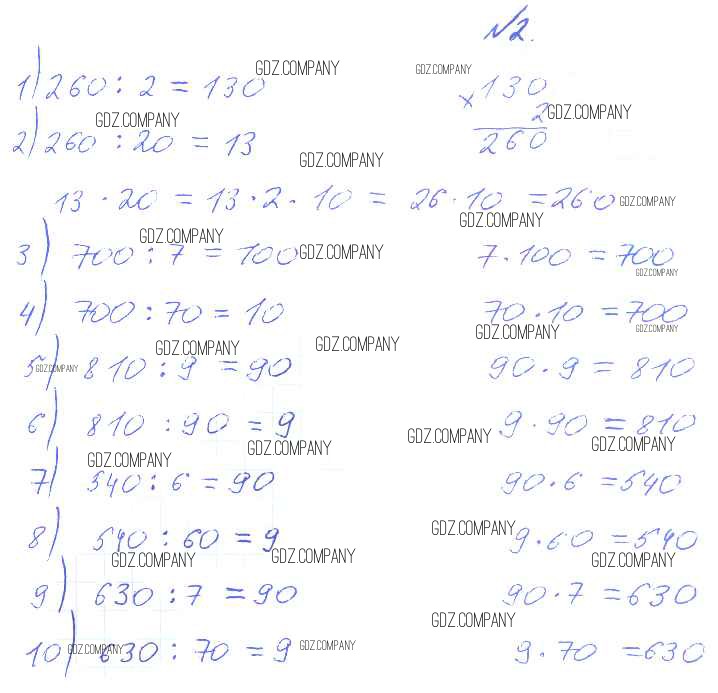 №2.
1) 260 : 2 = 130 GDZ.COMPANY GDZ.COMPANY × 130
2 GDZ.COMPANY
260
2) 260 : 20 = 13 GDZ.COMPANY GDZ.COMPANY
13 · 20 = 13 · 2 · 10 = 26 · 10 = 260 GDZ.COMPANY
GDZ.COMPANY GDZ.COMPANY
3) 700 : 7 = 100 GDZ.COMPANY 7 · 100 = 700
GDZ.COMPANY
4) 700 : 70 = 10 70 · 10 = 700
GDZ.COMPANY GDZ.COMPANY GDZ.COMPANY GDZ.COMPANY
5) GDZ.COMPANY 810 : 9 = 90 90 · 9 = 810
6) 810 : 90 = 9 9 · 90 = 810
GDZ.COMPANY GDZ.COMPANY GDZ.COMPANY GDZ.COMPANY
7) 540 : 6 = 90 90 · 6 = 540
8) 540 : 60 = 9 GDZ.COMPANY 9 · 60 = 540
GDZ.COMPANY GDZ.COMPANY GDZ.COMPANY
9) 630 : 7 = 90 90 · 7 = 630
GDZ.COMPANY
10) GDZ.COMPANY 630 : 70 = 9 GDZ.COMPANY 9 · 70 = 630